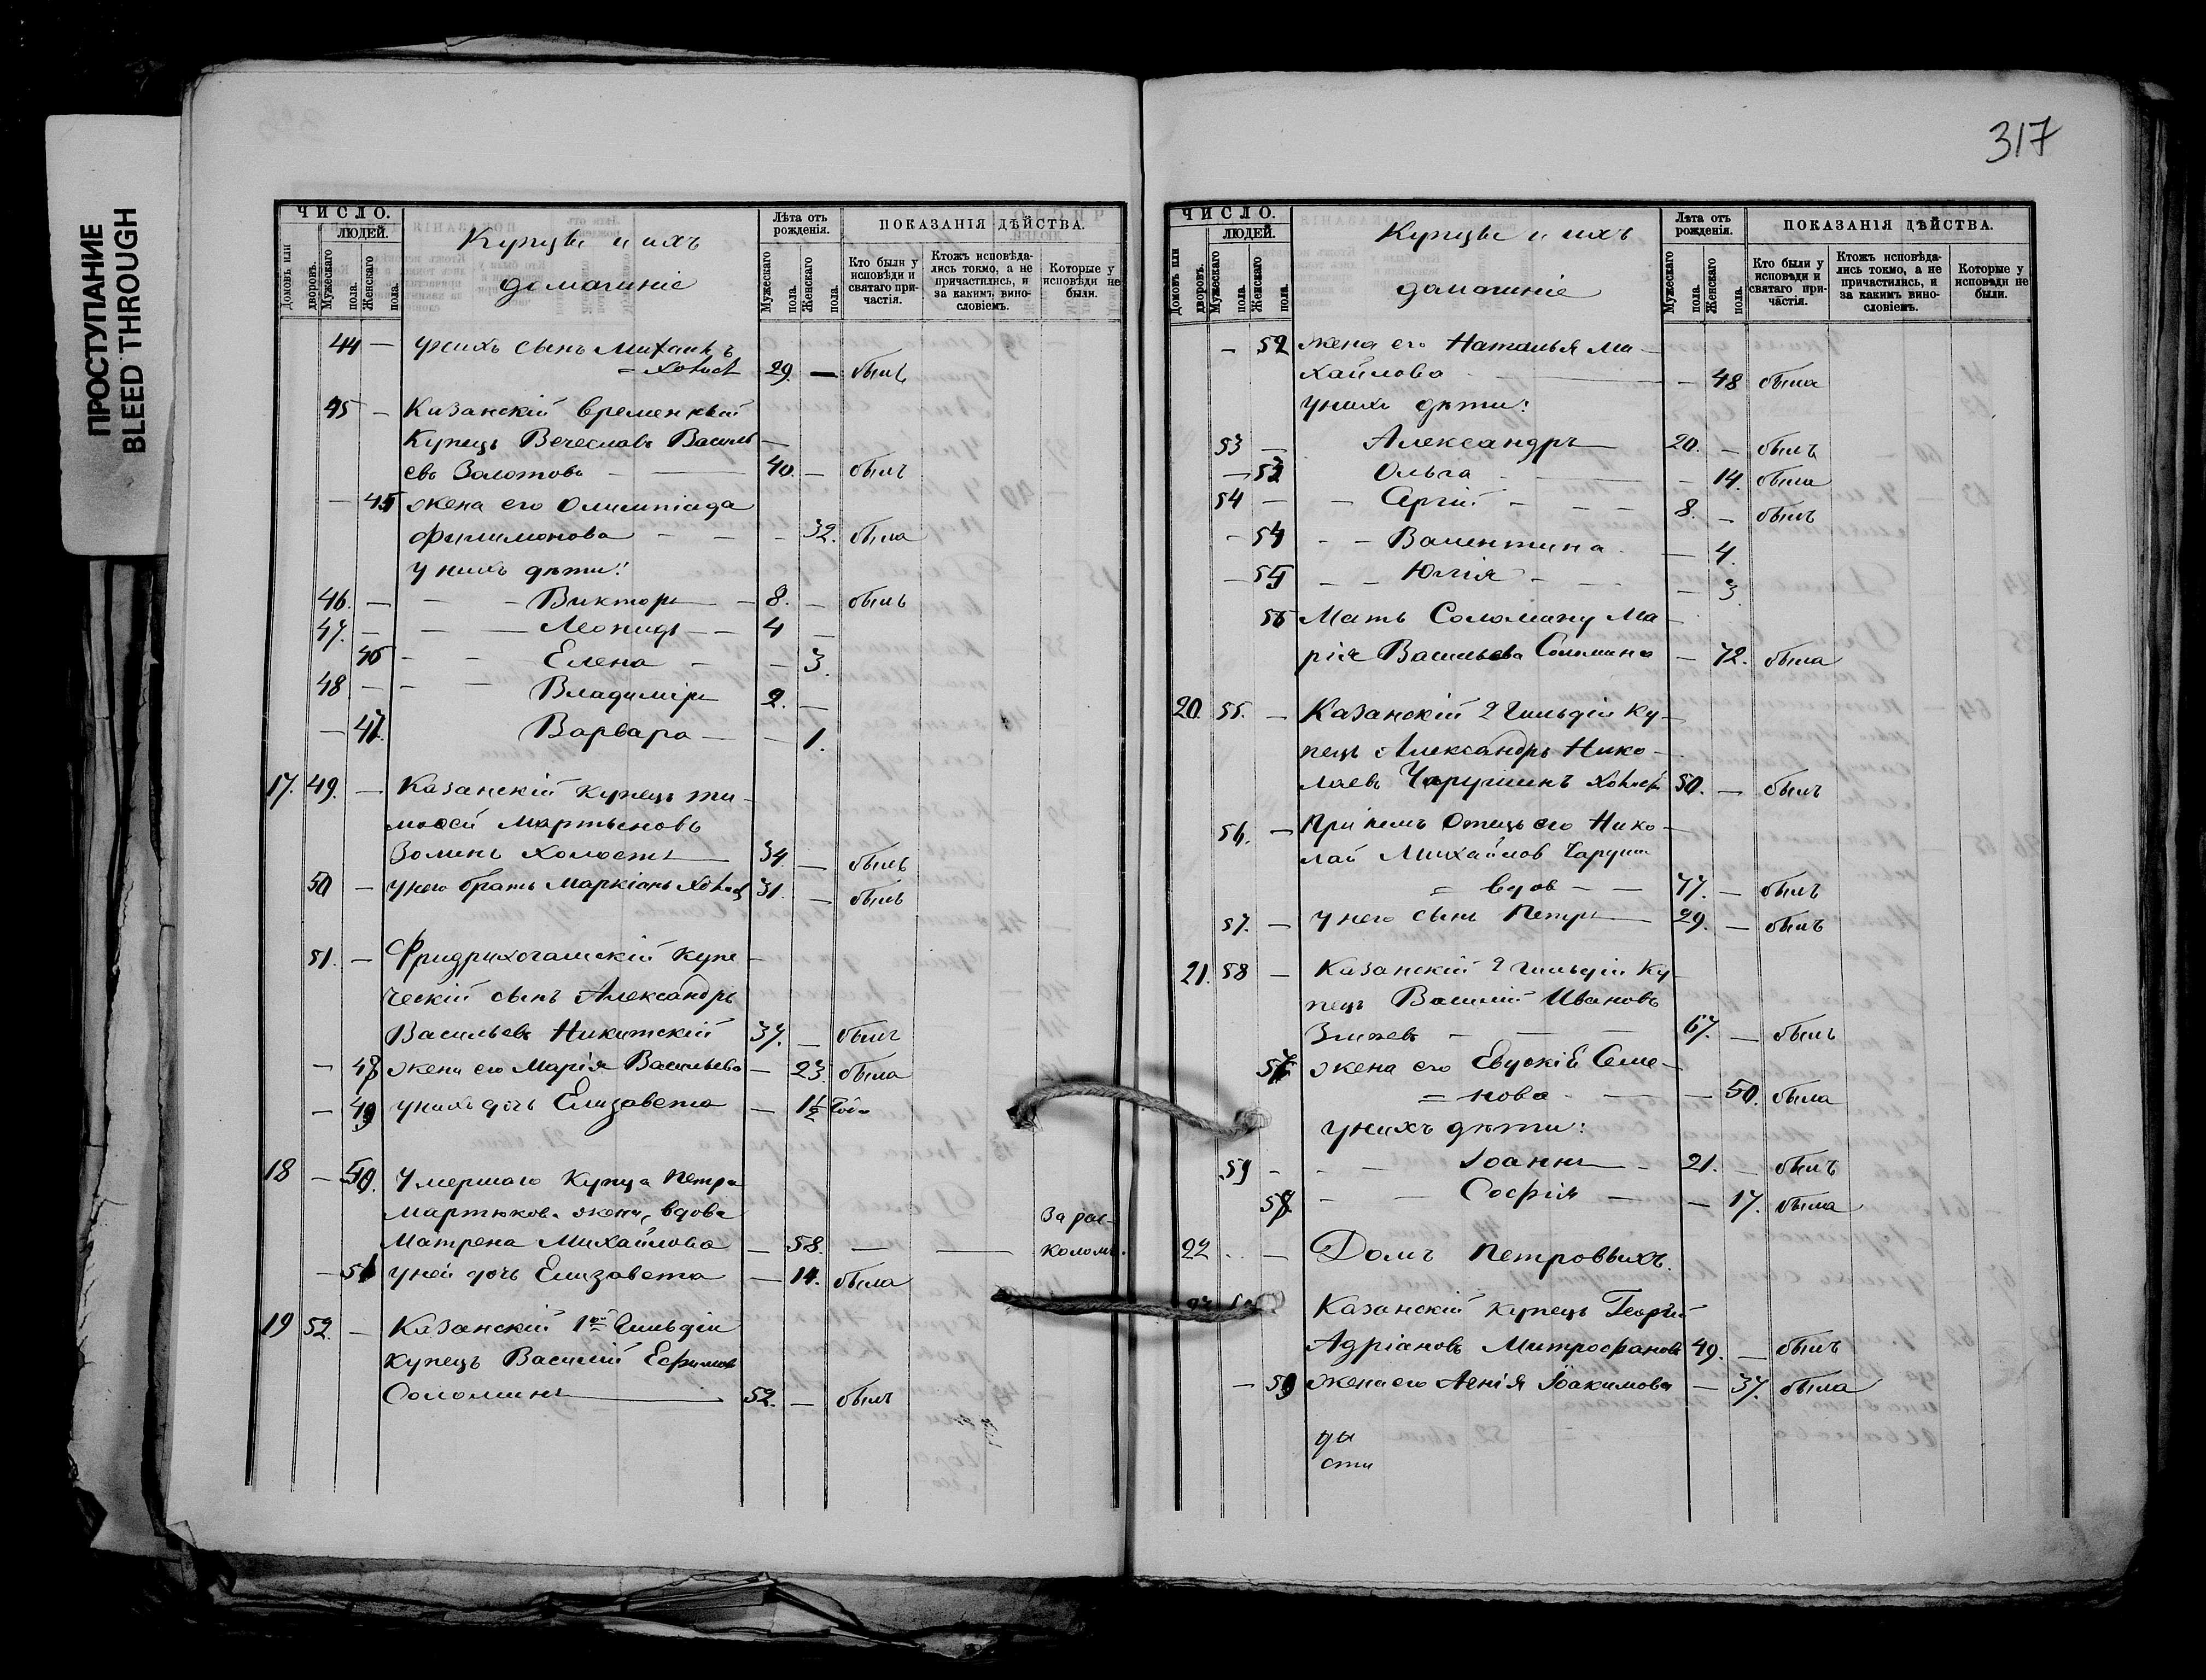 ПРОСТУПАНИЕ
BLEED THROUGH
317
ЧИСЛО.
ЛЮДЕЙ.
Домовъ или дворовъ.
Мужескаго пола.
Женскаго пола.
Купцы и ихъ
домашніе
Лѣта отъ рожденія.
Мужескаго пола.
Женскаго пола.
ПОКАЗАНІЯ ДѢЙСТВА.
Кто были у исповѣди и святаго причастія.
Ктожъ исповѣдались токмо, а не причастились, и за какимъ винословіемъ.
Которые у исповѣди не были.
44 — у нихъ сынъ Михаилъ
= Холост 29. — былъ
45 — Казанскій временный
Купецъ Вечеславъ Василь—
евъ Золотовъ — 40. — былъ
— 45 жена его Олимпіада
Филимонова — — — 32. была
у нихъ дѣти:
46. — — — Викторъ — 8. — былъ
47. — — — Леонидъ — — 4 —
46 — — Елена — — 3.
48 — — — Владиміръ 2. —
— 47. Варвара — — 1.
17. 49. — Казанскій купецъ Ти—
моѳей Мартыновъ
Золинъ холостъ — 34 — былъ
50 — у него братъ Маркіанъ Холост 31. — былъ
51. — Фридрихсгамскій купе—
ческій сынъ Александръ
Васильевъ Никитскій 37. — былъ
— 48 жена его Марія Васильева — 23. была
— 49 у нихъ дочь Елизавета — 1½ года
18 — 50. Умершаго Купца Петра
Мартюкова жена, вдова
Матрена Михайлова — 58. — — За рас—
коломъ.
— 51 у ней дочь Елизавета — 14. была
19 52. — Казанскій 1ой Гильдіи
купецъ Василій Ефимовъ
Соломинъ — 52. — былъ
ЧИСЛО.
ЛЮДЕЙ.
Домовъ или дворовъ.
Мужескаго пола.
Женскаго пола.
Купцы и ихъ
домашніе
Лѣта отъ рожденія.
Мужескаго пола.
Женскаго пола.
ПОКАЗАНІЯ ДѢЙСТВА.
Кто были у исповѣди и святаго причастія.
Ктожъ исповѣдались токмо, а не причастились, и за какимъ винословіемъ.
Которые у исповѣди не были.
— 52 жена его Наталья Ми—
хайлова — — 48 была
у нихъ дѣти:
53 — Александръ 20. — былъ
— 53 Ольга — — 14. была
54 — — Сергій — — — 8. — былъ
— 54 — — Валентина — 4.
— 55 — — Юлія — — — 3.
56 Мать Соломину Ма—
рія Васильева Соломина — 72. была
20. 55. — Казанскій 2 Гильдіи Ку—
пецъ Александръ Нико—
лаевъ Чарушинъ Холост 50. — былъ
56. — При немъ Отецъ его Нико—
лай Михайлов Чаруши
= вдов — — 77. — былъ
57. — у него сынъ Петръ — 29. — былъ
21. 58 — Казанскій 2 Гильдіи Ку—
пецъ Василій Ивановъ
— — — 67. — былъ
57 жена его Евдокія Семе—
= нова — — 50. была
у нихъ дѣти:
59 — — — Іоаннъ — 21. — былъ
58. — — Софія — — 17. была
22 — Домъ Петровыхъ.
Казанскій купецъ Георгій
Адріановъ Митрофановъ 49. — былъ
— 59 жена его Іоакимова — 37. была